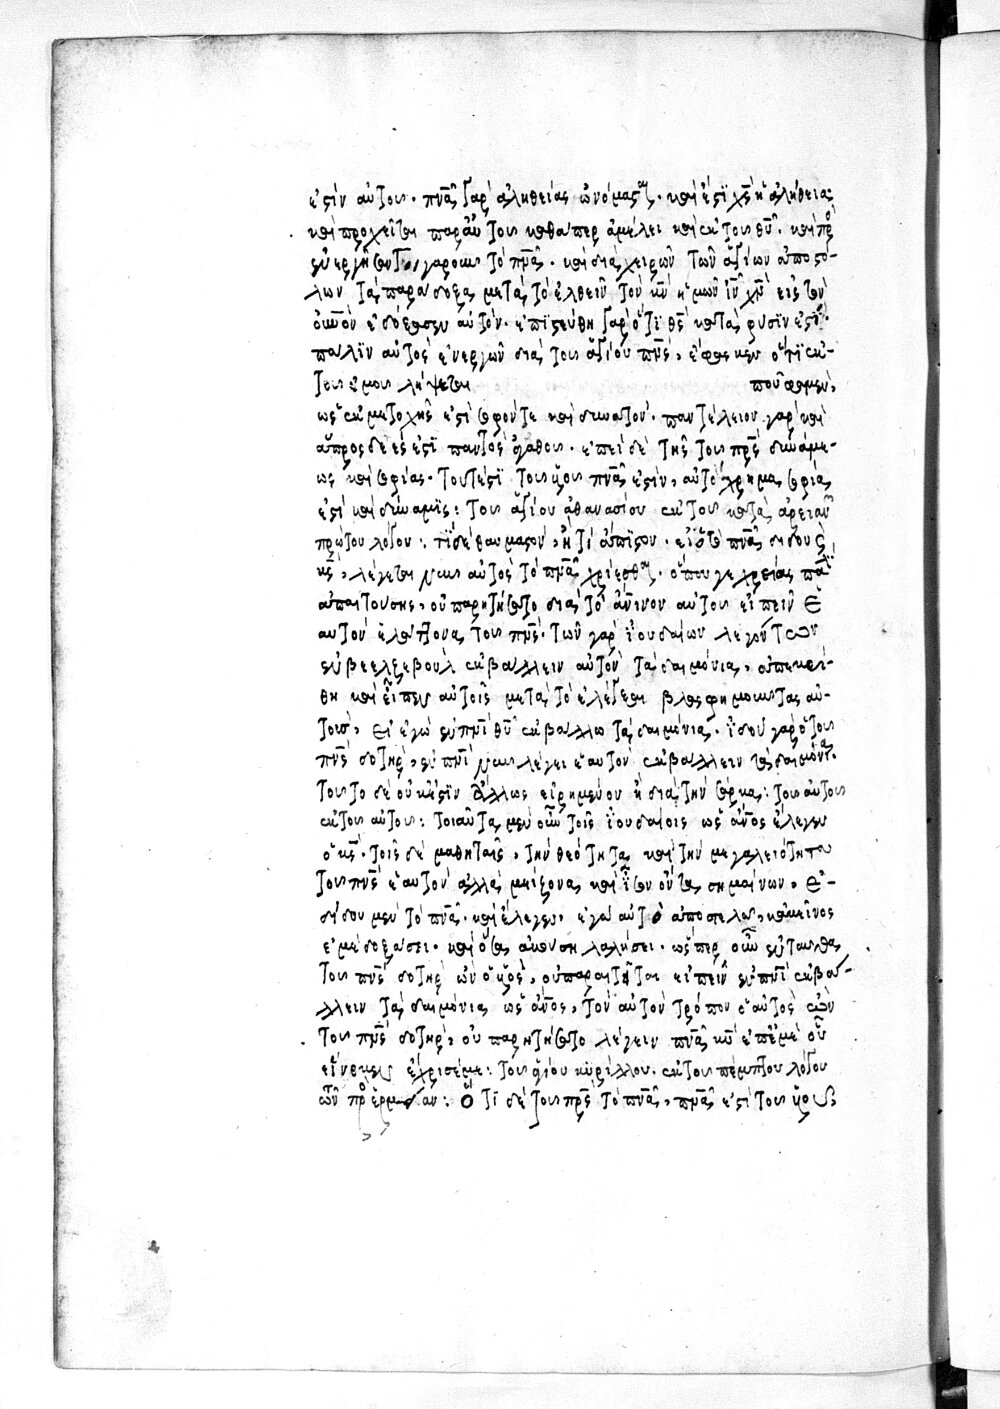 ἐστὶν αὐτοῦ. πνα γὰρ ἀληθείας ὠνόμασται. καὶ ἔστι χς ἡ ἀλήθεια:
καὶ προχεῖται παρ' αὐτοῦ καθάπερ ἀμέλει καὶ ἐκ τοῦ θυ. καὶ πρς
ἐνεργῆ τὸ πνα. καὶ διὰ χειρῶν τῶν ἁγίων ἀποστό-
λων τὰ παράδοξα, μετὰ τὸ ἐλθεῖν τὸν κν ἡμῶν ιν χν εἰς τὸν
οὐνον ἐδόξασεν αὐτόν. ἐπιστεύθη γὰρ ὅτι θς κατὰ φύσιν ἐστί.
πάλιν αὐτὸς ἐνεργῶν διὰ τοῦ ἁγίου πνς, ἔφασκεν ὅτι ἐκ
τοῦ ἐμοῦ λήψεται που φαμεν,
ὡς ἐκ μετοχῆς ἐστὶ σοφόν τε καὶ δυνατόν. παντέλειον γὰρ καὶ
ἀπροσδεές ἐστι παντὸς ἀγαθοῦ. ἐπειδὲ τῆς τοῦ πρς δυνάμε-
ως καὶ σοφίας. τουτέστι τοῦ υου πνα ἐστίν, αὐτόχρημα σοφία
ἐστὶ καὶ δύναμις: τοῦ ἁγίου ἀθανασίου ἐκ τοῦ κατὰ ἀρειανῶν
πρώτου λόγου: τί δὲ θαυμαστόν, ἢ τί ἄπιστον. εἰ ὁ τὸ πνα διδοὺς
κς, λέγεται νῦν αὐτὸς τὸ πνι χρίεσθαι. ὅπου γε χρείας πάλιν
ἀπαιτούσης, οὐ παρῃτήσατο διὰ τὸ ἀνινον αὐτοῦ εἰπεῖν ἑ
αυτὸν ἐλάττονα τοῦ πνς. τῶν γὰρ ἰουδαίων λεγόντων
ἐν βεελζεβοὺλ ἐκβάλλειν αὐτὸν τὰ δαιμόνια, ἀπεκρί-
θη καὶ εἶπεν αὐτοῖς μετὰ τὸ ἐλέγξαι βλασφημοῦντας αὐ-
τούς, εἰ ἐγὼ ἐν πνι θυ ἐκβάλλω τὰ δαιμόνια. ἰδοὺ γὰρ ὁ τοῦ
πνς δοτήρ, ἐν πνι νῦν λέγει ἑαυτὸν ἐκβάλλειν τὰ δαιμόνια.
τοῦτο δὲ οὐκ ἔστιν ἄλλως εἰρημένον ἢ διὰ τὴν σάρκα: τοῦ αὐτοῦ
ἐκ τοῦ αὐτοῦ: τοιαῦτα μὲν οὖν τοῖς ἰουδαίοις ὡς ἀνος ἔλεγεν
ὁ κς. τοῖς δὲ μαθηταῖς, τὴν θεότητα καὶ τὴν μεγαλειότητα
τοῦ πνς ἑαυτὸν ἀλλὰ μείζονα καὶ ἴσον ὄντα σημαίνων, ἐ-
δίδου μὲν τὸ πνα. καὶ ἔλεγεν, ἐγὼ αὐτὸ ἀποστελῶ, κἀκεῖνος
ἐμὲ δοξάσει. καὶ ὅσα ἀκούσῃ λαλήσει. ὥσπερ οὖν ἐνταῦθα
τοῦ πνς δοτὴρ ὢν ὁ κύριος, οὐ παραιτεῖται εἰπεῖν ἐν πνι ἐκβά-
λλειν τὰ δαιμόνια ὡς ἀνος, τὸν αὐτὸν τρόπον ὁ αὐτὸς ὢν
τοῦ πνς δοτήρ, οὐ παρῃτήσατο λέγειν πνα κυ ἐπ' ἐμὲ οὗ
εἵνεκεν ἔχρισέ με: τοῦ ἁγίου κυρίλλου. ἐκ τοῦ πέμπτου λόγου
τῶν πρὸς ἑρμείαν: ὅτι δὲ τοῦ πρς τὸ πνα, πνα ἐστὶ τοῦ υου,